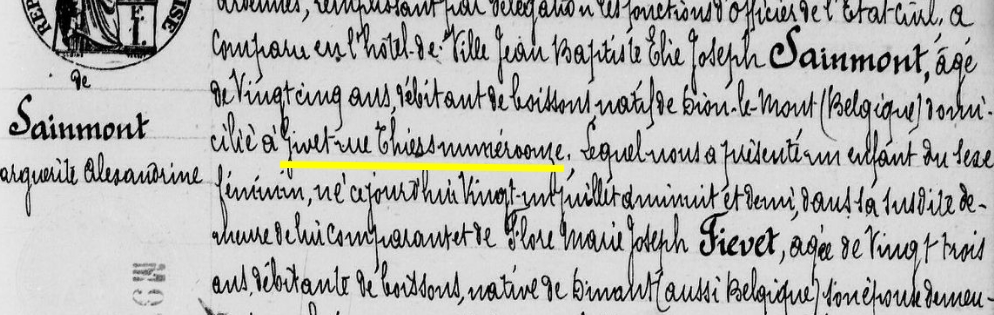 Ardennes, remplissant par délégation les fonctions d'officier de l'Etat-Civil, a
Comparu en l'hôtel-de-Ville Jean Baptiste Elie Joseph Sainmont, âgé
de Vingt cinq ans, débitant de boissons, natif de Dion-le-Mont (Belgique) domi-
cilié à Givet rue Thiers numéro onze. Lequel nous a présenté un enfant du sexe
féminin, né ce jourd'hui Vingt-un juillet à minuit et demi, dans la susdite de-
meure de lui Comparant et de Flore Marie Joseph Fievet, agée de Vingt-trois
ans, débitante de boissons, native de Dinant (aussi Belgique) son épouse demeu-
de
Sainmont
arguerite Alexandrine